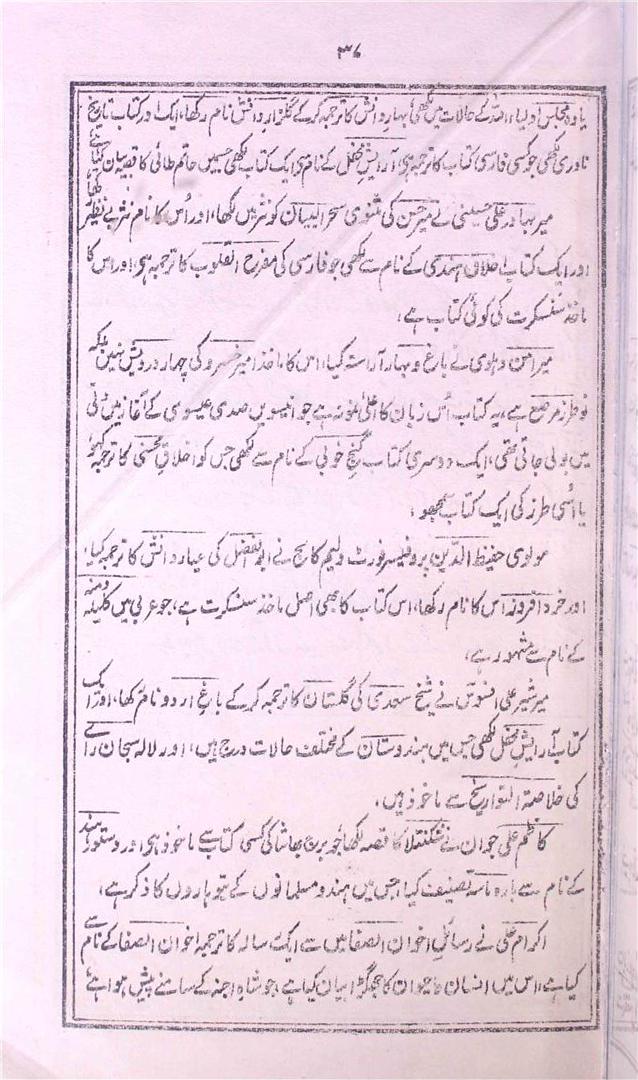 ۳۷
یا وہ مجلس اولیاء اللہ کے حالات میں لکھی، بہار دانش کا ترجمہ کرکے گلزار دانش نام رکھا، ایک اور کتاب تاریخ
نادری لکھی جو کسی فارسی کتاب کا ترجمہ ہی، آرایش محفل کے نام سی ایک کتاب لکھی جسمیں حاتم طائی کا قصہ بیان کیا ہے
میر بہادر علی حسینی نے میر حسن کی مثنوی سحر البیان کو نثر میں لکھا، اور اُس کا نام نثر بے نظیر رکھا
اور ایک کتاب اخلاق ہندی کے نام سے لکھی جو فارسی کی مفرح القلوب کا ترجمہ ہی، اور اس کا
ماخذ سنسکرت کی کوئی کتاب ہے،
میر امن دہلوی نے باغ و بہار آراستہ کیا، اس کا ماخذ امیر خسرو کی چہار درویش نہیں بلکہ
نو طرز مرصع ہے، یہ کتاب اُس زبان کا اعلیٰ نمونہ ہے جو انیسویں صدی عیسوی کے آغاز میں دلّی
میں بولی جاتی تھی، ایک دوسری کتاب گنج خوبی کے نام سے لکھی جس کو اخلاق محسنی کا ترجمہ کہو
یا اُسی طرز کی ایک کتاب سمجھو،
مولوی حفیظ الدین پروفیسر فورٹ ولیم کالج نے ابو الفضل کی عیار دانش کا ترجمہ کیا،
اور خرد افروز اس کا نام رکھا، اس کتاب کا بھی اصل ماخذ سنسکرت ہے، جو عربی میں کلیلہ دمنہ
کے نام سے مشہور ہے،
میر شیر علی افسوس نے شیخ سعدی کی گلستان کا ترجمہ کرکے باغ اردو نام رکھا، اور ایک
کتاب آرایش محفل لکھی جس میں ہندوستان کے مختلف حالات درج ہیں، اور لالہ سبحان رائے
کی خلاصۃ التواریخ سے ماخوذ ہیں،
کاظم علی جوان نے شکنتلا کا قصہ لکھا جو برج بھاشا کی کسی کتاب سے ماخوذ ہی، اور دستور ہند
کے نام سے بارہ ماسہ تصنیف کیا، جس میں ہندو مسلمانوں کے تیوہاروں کا ذکر ہے،
اکرام علی نے رسائل اخوان الصفا میں سے ایک رسالہ کا ترجمہ اخوان الصفا کے نام سے
کیا ہے، اس میں انسان و حیوان کا جھگڑا بیان کیا ہے، جو شاہ اجنہ کے سامنے پیش ہوا ہے